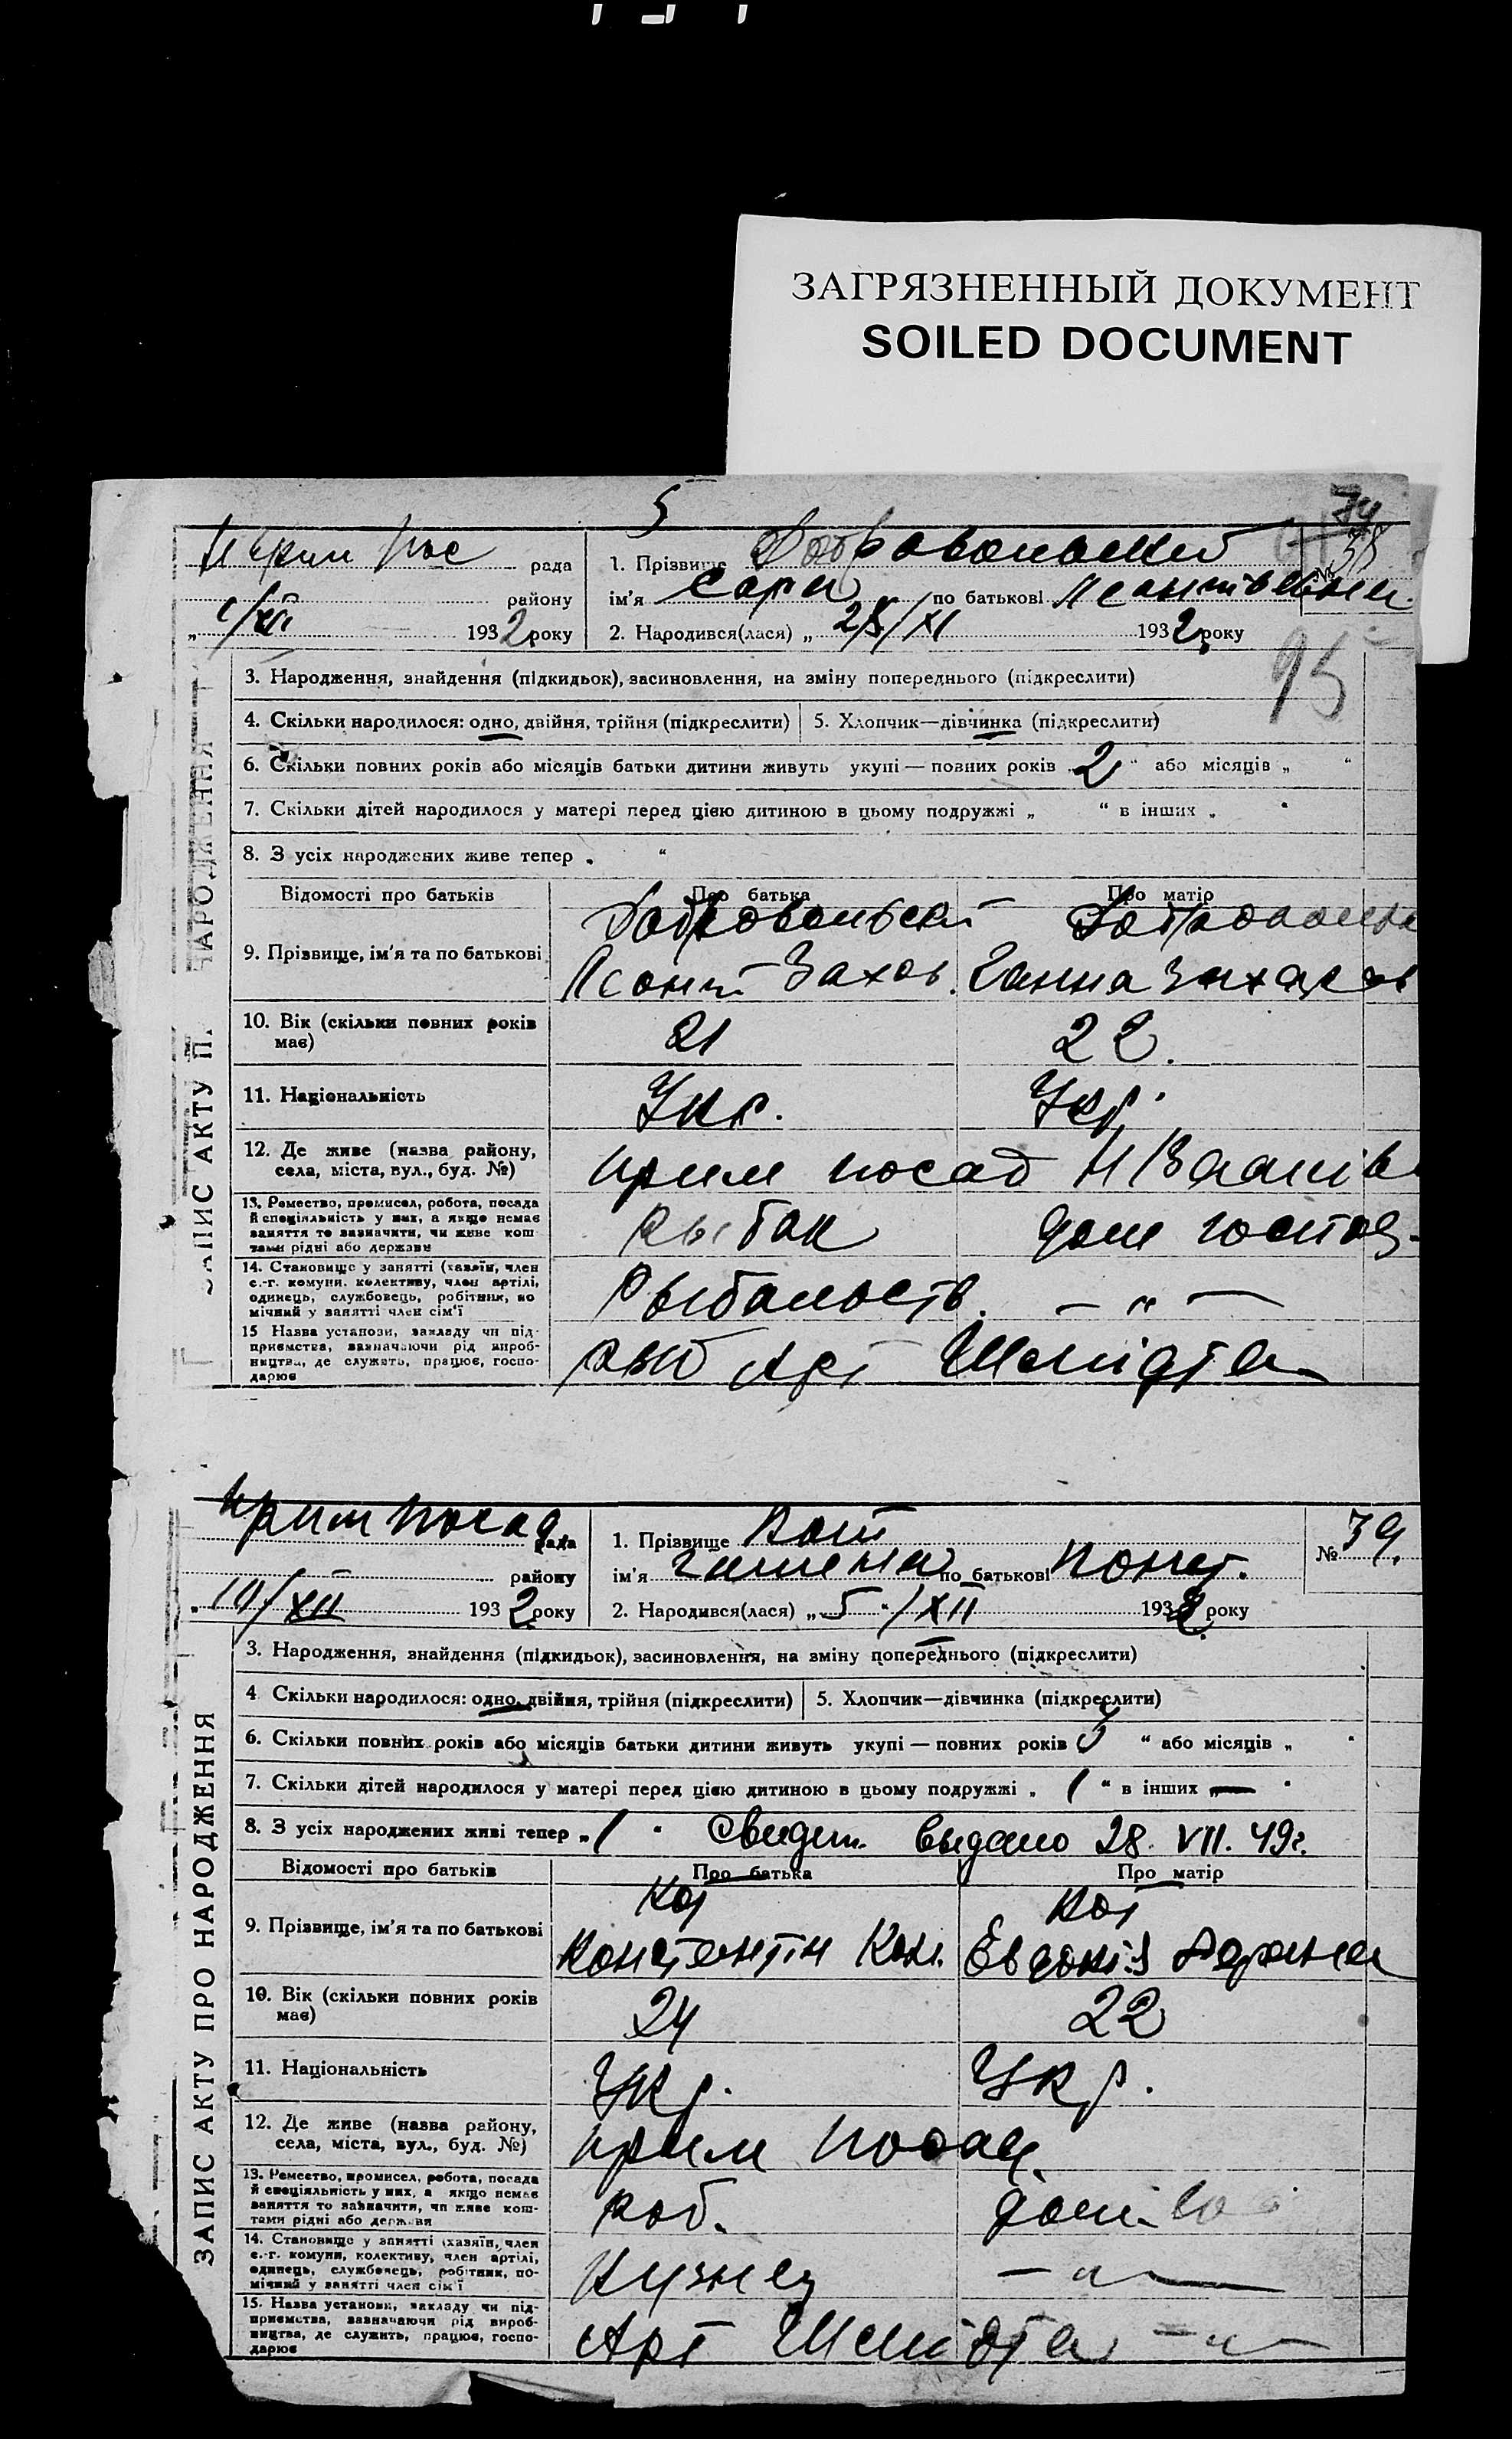 ЗАГРЯЗНЕННЫЙ ДОКУМЕНТ
SOILED DOCUMENT
5
74
38
рада 1. Прізвище №
району ім'я по батькові
1/XII 1932 року 2. Народився(лася) „ 28/XI 1932 року
95
3. Народження, знайдення (підкидьок), засиновлення, на зміну попереднього (підкреслити)
4. Скільки народилося: одно, двійня, трійня (підкреслити) 5. Хлопчик—дівчинка (підкреслити)
6. Скільки повних років або місяців батьки дитини живуть укупі — повних років „ 2 “ або місяців „ “
7. Скільки дітей народилося у матері перед цією дитиною в цьому подружжі „ “ в інших „ “
8. З усіх народжених живе тепер „ “
Відомості про батьків Про батька Про матір
9. Прізвище, ім'я та по батькові
Захов. Ганна Захаров
10. Вік (скільки повних років має) 21 22.
11. Національність Укр. Укр.
12. Де живе (назва району, села, міста, вул., буд. №) Прим посад
13. Ремество, промисел, робота, посада й спеціяльність у них, а якщо немає заняття то зазначити, чи живе коштами рідні або держави рыбак дом господ.
14. Становище у занятті (хазяїн, член с.-г. комуни, колективу, член артілі, одинець, службовець, робітник, помічний у занятті член сім'ї — „ —
15 Назва установи, закладу чи підприємства, зазначаючи рід виробництва, де служить, працює, господарює рыб Арт Шмідта
ЗАПИС АКТУ П. НАРОДЖЕННЯ
Прим посад. рада 1. Прізвище Кот № 39.
району ім'я по батькові Конст.
10/XII 1932 року 2. Народився(лася) „ 5 “ /XII 1932 року
3. Народження, знайдення (підкидьок), засиновлення, на зміну попереднього (підкреслити)
4 Скільки народилося: одно, двійня, трійня (підкреслити) 5. Хлопчик—дівчинка (підкреслити)
6. Скільки повних років або місяців батьки дитини живуть укупі — повних років “ або місяців „ “
7. Скільки дітей народилося у матері перед цією дитиною в цьому подружжі „ 1 “ в інших „ — “
8. З усіх народжених живі тепер „ 1 “ Свидет. выдано 28. VII. 49г.
Відомості про батьків Про батька Про матір
9. Прізвище, ім'я та по батькові Кот Кот
Константін Кон. Евдокія
10. Вік (скільки повних років має) 24 22
11. Національність Укр. Укр.
12. Де живе (назва району, села, міста, вул., буд. №) Прим Посад.
13. Ремество, промисел, робота, посада й спеціяльність у них, а якщо немає заняття то зазначити, чи живе коштами рідні або держави роб. дом.
14. Становище у занятті (хазяїн, член с.-г. комуни, колективу, член артілі, одинець, службовець, робітник, помічний у занятті член сім'ї кузнец — „ —
15. Назва установи, закладу чи підприємства, зазначаючи рід виробництва, де служить, працює, господарює Арт Шмідта — „ —
ЗАПИС АКТУ ПРО НАРОДЖЕННЯ